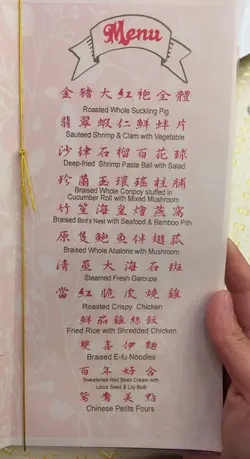 Menu
金豬大紅袍全體
Roasted Whole Suckling Pig
翡翠蝦仁鮮蚌片
Sauteed Shrimp & Clam with Vegetable
沙律石榴百花球
Deep-fried Shrimp Paste Ball with Salad
珍菌玉環瑤柱脯
Braised Whole Conpoy stuffed in
Cucumber Roll with Mixed Mushroom
竹笙海皇燴燕窩
Braised Bird's Nest with Seafood & Bamboo Pith
原隻鮑魚伴翅菰
Braised Whole Abalone with Mushroom
清蒸大海石斑
Steamed Fresh Garoupa
當紅脆皮燒雞
Roasted Crispy Chicken
鮮茄雞絲飯
Fried Rice with Shredded Chicken
雙喜伊麵
Braised E-fu Noodles
百年好合
Sweetened Red Bean Cream with
Lotus Seed & Lily Bulb
鴛鴦美點
Chinese Petits Fours